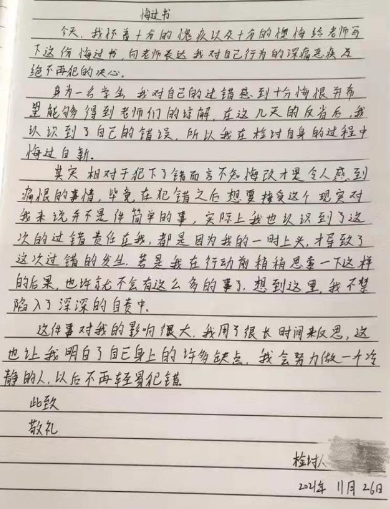 悔过书
今天，我怀着十分的愧疚以及十分的懊悔给老师写
下这份悔过书，向老师表达我对自己行为的深痛恶疾及
绝不再犯的决心。
身为一名学生，我对自己的过错感到十分悔恨并希
望能够得到老师们的谅解，在这几天的反省后，我
认识到了自己的错误，所以我在检讨自身的过程中
悔过自新。
其实相对于犯下了错而言不知悔改才更令人感到
痛恨的事情，毕竟在犯错之后想要接受这个现实对
我来说并不是件简单的事，实际上我也认识到了这
次的过错责任在我，都是因为我的一时上头，才导致了
这次过错的发生，若是我在行动前稍稍思索一下这样
的后果，也许就不会有这么多的事了，想到这里，我不禁
陷入了深深的自责中。
这件事对我的影响很大，我用了很长时间来反思，这
也让我明白了自己身上的许多缺点，我会努力做一个冷
静的人，以后不再轻易犯错。
此致
敬礼
检讨人
2021年 11月 26日